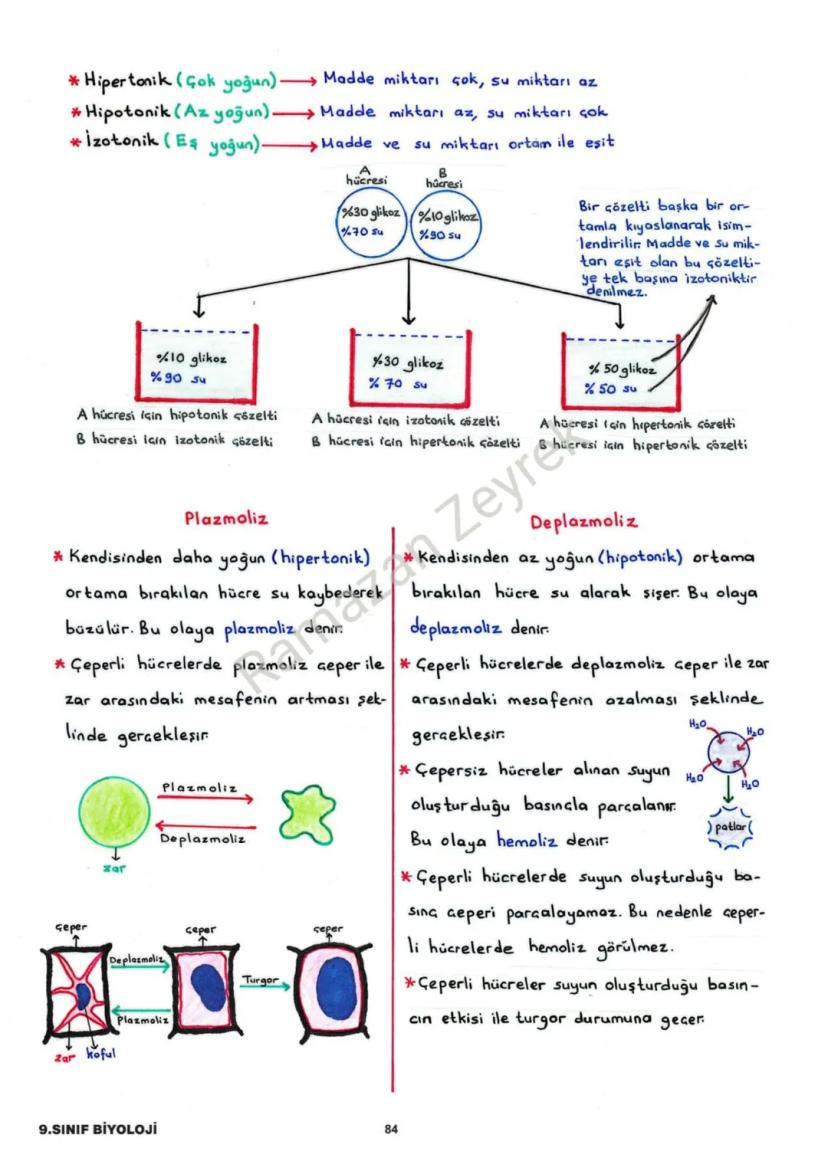 * Hipertonik (Çok yoğun) → Madde miktarı çok, su miktarı az
* Hipotonik (Az yoğun) → Madde miktarı az, su miktarı çok
* İzotonik (Eş yoğun) → Madde ve su miktarı ortam ile eşit
A hücresi
B hücresi
%30 glikoz
%70 su
%10 glikoz
%90 su
Bir çözelti başka bir or-
tamla kıyaslanarak isim-
lendirilir. Madde ve su mik-
tarı eşit olan bu çözelti-
ye tek başına izotoniktir
denilmez.
%10 glikoz
%90 su
%30 glikoz
%70 su
%50 glikoz
%50 su
A hücresi için hipotonik çözelti
B hücresi için izotonik çözelti
A hücresi için izotonik çözelti
B hücresi için hipertonik çözelti
A hücresi için hipertonik çözelti
B hücresi için hipertonik çözelti
Ramazan Zeyrek
Plazmoliz
* Kendisinden daha yoğun (hipertonik)
ortama bırakılan hücre su kaybederek
büzülür. Bu olaya plazmoliz denir.
* Çeperli hücrelerde plazmoliz çeper ile
zar arasındaki mesafenin artması şek-
linde gerçekleşir.
Plazmoliz
Deplazmoliz
zar
çeper
çeper
çeper
Deplazmoliz
Plazmoliz
Turgor
zar
koful
Deplazmoliz
* Kendisinden az yoğun (hipotonik) ortama
bırakılan hücre su alarak şişer. Bu olaya
deplazmoliz denir.
* Çeperli hücrelerde deplazmoliz çeper ile zar
arasındaki mesafenin azalması şeklinde
gerçekleşir.
* Çepersiz hücreler alınan suyun
oluşturduğu basınçla parçalanır.
Bu olaya hemoliz denir.
H₂O
H₂O
H₂O
H₂O
patlar
* Çeperli hücrelerde suyun oluşturduğu ba-
sınç çeperi parçalayamaz. Bu nedenle çeper-
li hücrelerde hemoliz görülmez.
* Çeperli hücreler suyun oluşturduğu basın-
cın etkisi ile turgor durumuna geçer.
9.SINIF BİYOLOJİ
84